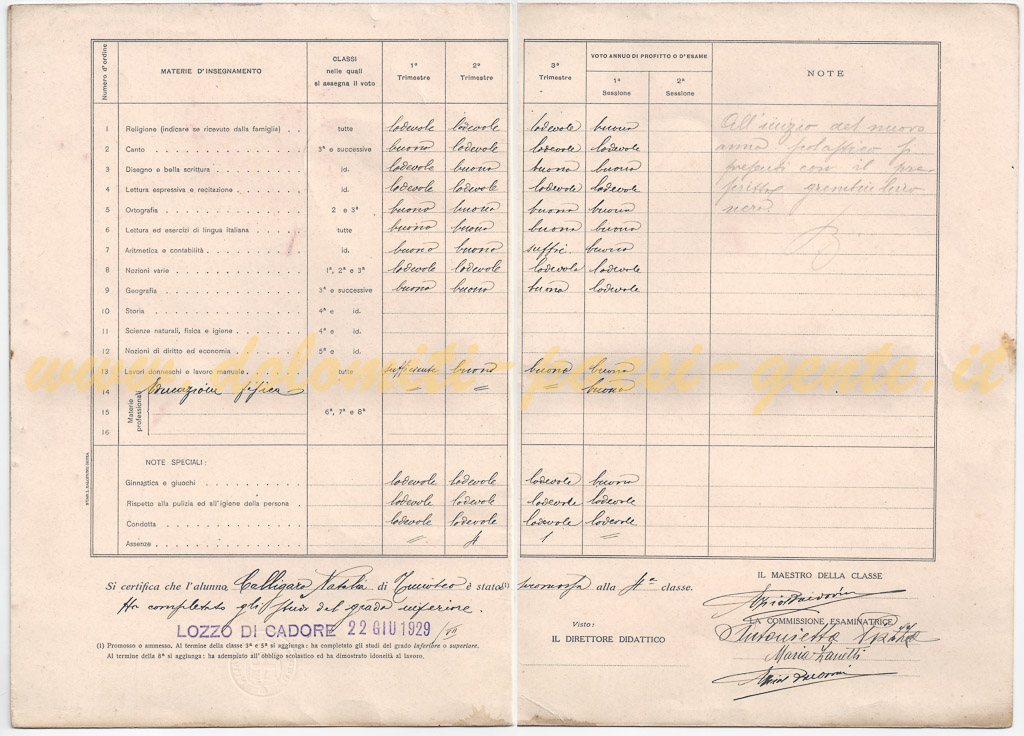 Numero d'ordine MATERIE D'INSEGNAMENTO CLASSI nelle quali si assegna il voto 1º Trimestre 2º Trimestre 3º Trimestre VOTO ANNUO DI PROFITTO O D'ESAME 1ª Sessione 2ª Sessione NOTE
1 Religione (indicare se ricevuto dalla famiglia) . . tutte lodevole lodevole lodevole buono
2 Canto 3ª e successive buono lodevole lodevole lodevole
3 Disegno e bella scrittura id. lodevole buono buono buono
4 Lettura espressiva e recitazione id. lodevole lodevole lodevole lodevole
5 Ortografia 2 e 3ª buono buono buono buono
6 Lettura ed esercizi di lingua italiana tutte buono buono buono buono
7 Aritmetica e contabilità id. buono buono suffic. buono
8 Nozioni varie 1ª, 2ª e 3ª lodevole lodevole lodevole lodevole
9 Geografia 3ª e successive buono buono buono lodevole
10 Storia 4ª e id.
11 Scienze naturali, fisica e igiene 4ª e id.
12 Nozioni di diritto ed economia 5ª e id.
13 Lavori donneschi e lavoro manuale tutte sufficiente buono buono buono
14 Educazione fisica " " " buono
15 Materie professionali 6ª, 7ª e 8ª
16
All'inizio del nuovo
anno scolastico si
presenti con il pre-
scritto grembiule
nero
www.dolomiti-passi-gente.it
NOTE SPECIALI:
Ginnastica e giuochi lodevole lodevole lodevole buono
Rispetto alla pulizia ed all'igiene della persona lodevole lodevole lodevole lodevole
Condotta lodevole lodevole lodevole lodevole
Assenze " 4 1 "
Si certifica che l'alunno Calligaro Natalia di Timoteo è stato(1) promossa alla 4ª classe.
Ha completato gli studi del grado inferiore.
LOZZO DI CADORE 22 GIU 1929 /VII
(1) Promosso o ammesso. Al termine della classe 3ª e 5ª si aggiunga: ha completato gli studi del grado inferiore o superiore.
Al termine della 8ª si aggiunga: ha adempiuto all'obbligo scolastico ed ha dimostrato idoneità al lavoro.
Visto:
IL DIRETTORE DIDATTICO
IL MAESTRO DELLA CLASSE
LA COMMISSIONE ESAMINATRICE
Maria Zanetti